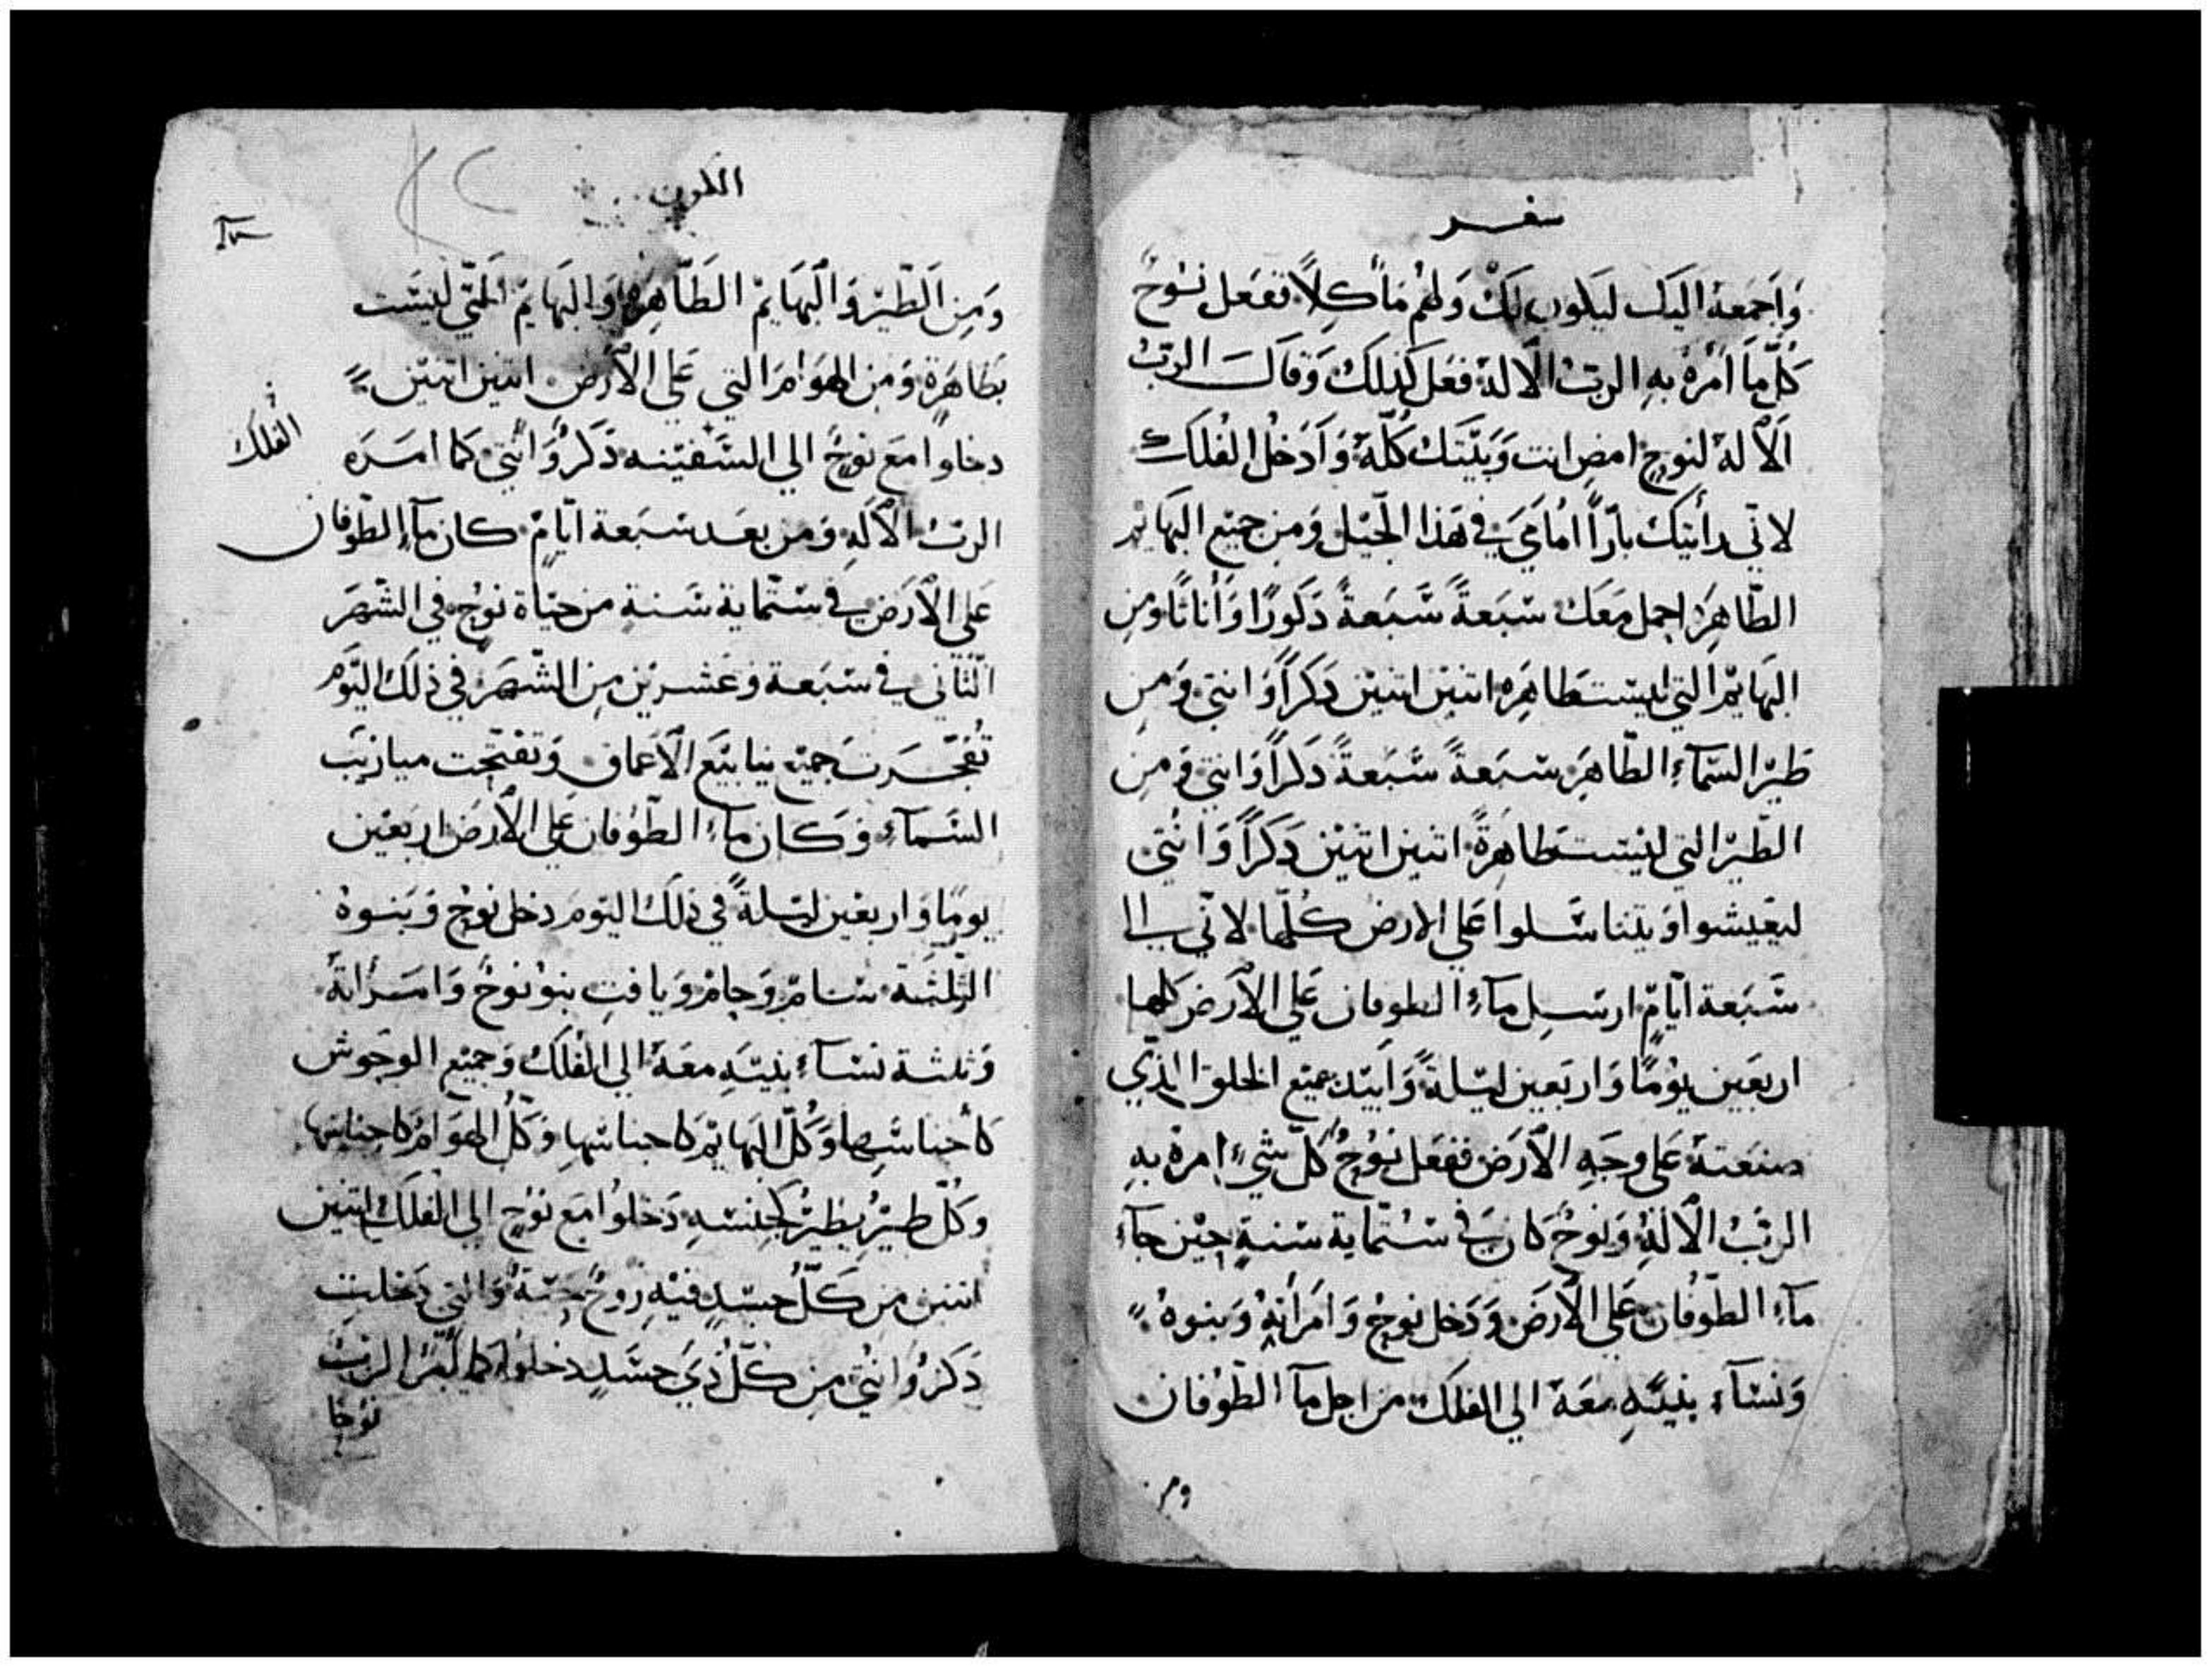 سفر
وَاجمَعهُ اليَك ليَكون لكَ وَلهُم مَأكِلاً ففعَل نوُحٌ
كُلّ مَا امَرهُ بهِ الربُ الالهَ فعَل كذلكَ وَقالَ الربُ
الالهُ لنوحٍ امضِ انت وَبيَتَك كُلّهُ وَادَخُل الفُلكَ
لانّى رأيتك بارّاً امُامَي في هَذا الجّيل وَمِن جميع البَهايم
الطّاهِرَه احمل مَعَك سَبعَةً سَبَعةً ذكورًا وَأناثًا وَمِن
البَهايم التي ليسَت بطَاهِرَه اثنين اثنين ذكَرَاً وَانثي وَمِن
طَيرِ السَمآءِ الطّاهِرَ سَبعَةً سَبَعةً ذكراً وَانثي وَمِن
الطّير التي ليسَت بطَاهِرَةً اثنين اثنين ذكَرَاً وَانثي
ليَعيشوا وَيتناسَلوا عَلي الارض كُلّها لانّي الي
سَبَعة ايّامٍ ارسِل مآءِ الطوفان عَلي الارَض كلها
اربَعين يوُمًا وَاربَعين ليَلةً وَابيَد جميع الخلق الذّي
صنعَتهُ عَلي وجَهِ الارَض ففعَل نوُحٌ كُلّ شيءٍ امرهُ بهِ
الربُ الالهُ وَنوحٌ كان في سُتّماية سَنةٍ حيْن جآء
مآءِ الطّوفان عَلي الارَض وَدَخل نوحٌ وَامَرأتهُ وَبنوهُ
وَنسآء بنيَهِ معَهُ الي الفلكَ من اجل مآ الطّوُفان
ومن
التكوين
وَمِن الطَيْر وَالبَهَايمْ الطَاهِرَه وَالبَهَايم التّي ليسَت
بطَاهَرَةٍ وَمِن الهَوَامَ التي عَلي الارَض اثنين اثنيَن
دخلوا مَع نوحٌ الي السَفيّنه ذكَرٌ وَانثي كَما امَرَه
الفلك
الربُ الالَهِ وَمن بعَد سَبَعة ايّامٌ كان مآء الطّوفان
عَلي الارَض في ستّماية سَنةٍ من حَيَاة نوحٍ في الشَهرَ
الثّاني في سَبَعة وَعشرين مِن الشَهَر في ذلكَ اليَوَم
تُفَجّرَت جميع ينابيَعَ الاعماق وَتفتّحت ميازيبَ
السَمآء وَكان مآءِ الطّوُفان عَلي الارَض اربَعين
يومًا وَاربعَين ليَلةً في ذلكَ اليَوم دخل نوحٌ وَبنوهُ
الثلثَة سَامْ وَحامْ وَيافت بنو نوُحٌ وَامَرأتهُ
وَثلثة نسَآءِ بنيَهِ معَهُ الي الفلَكَ وَجميَع الوحوش
كاجناسَها وَكُلّ البَهايمْ كاجناسَهَا وَكُلّ الهوَامْ كاجناسَها
وكُلّ طيرٍ يطيرُ كجنسَهِ دَخلوا مَع نوحٍ الي الفلكَ اثنين
اثنين من كَلّ جسَدٍ فيْهِ رُوحٌ حَيَةٌ وَالتي دَخلت
ذكَرٌ وَانثي مِن كُلّ ذي جسَدٍ دخلوا كما امَر الربُ
نوحًا